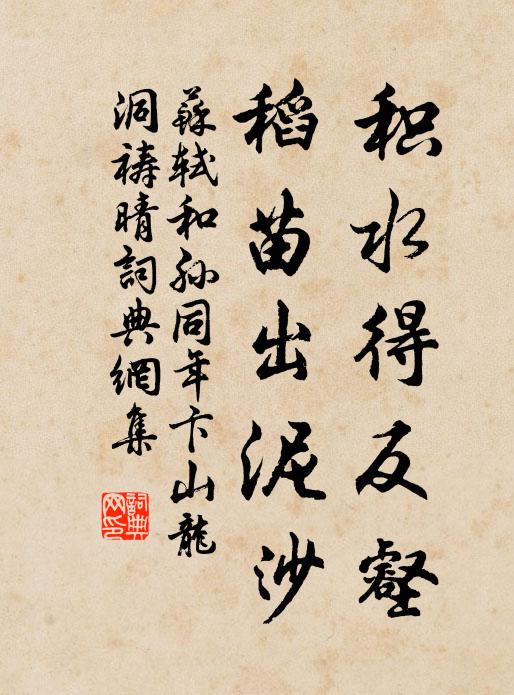 积水得反壑
稻苗出泥沙
蘇軾和孙同年卞山龍
洞禱晴詞典網集
詞典网印